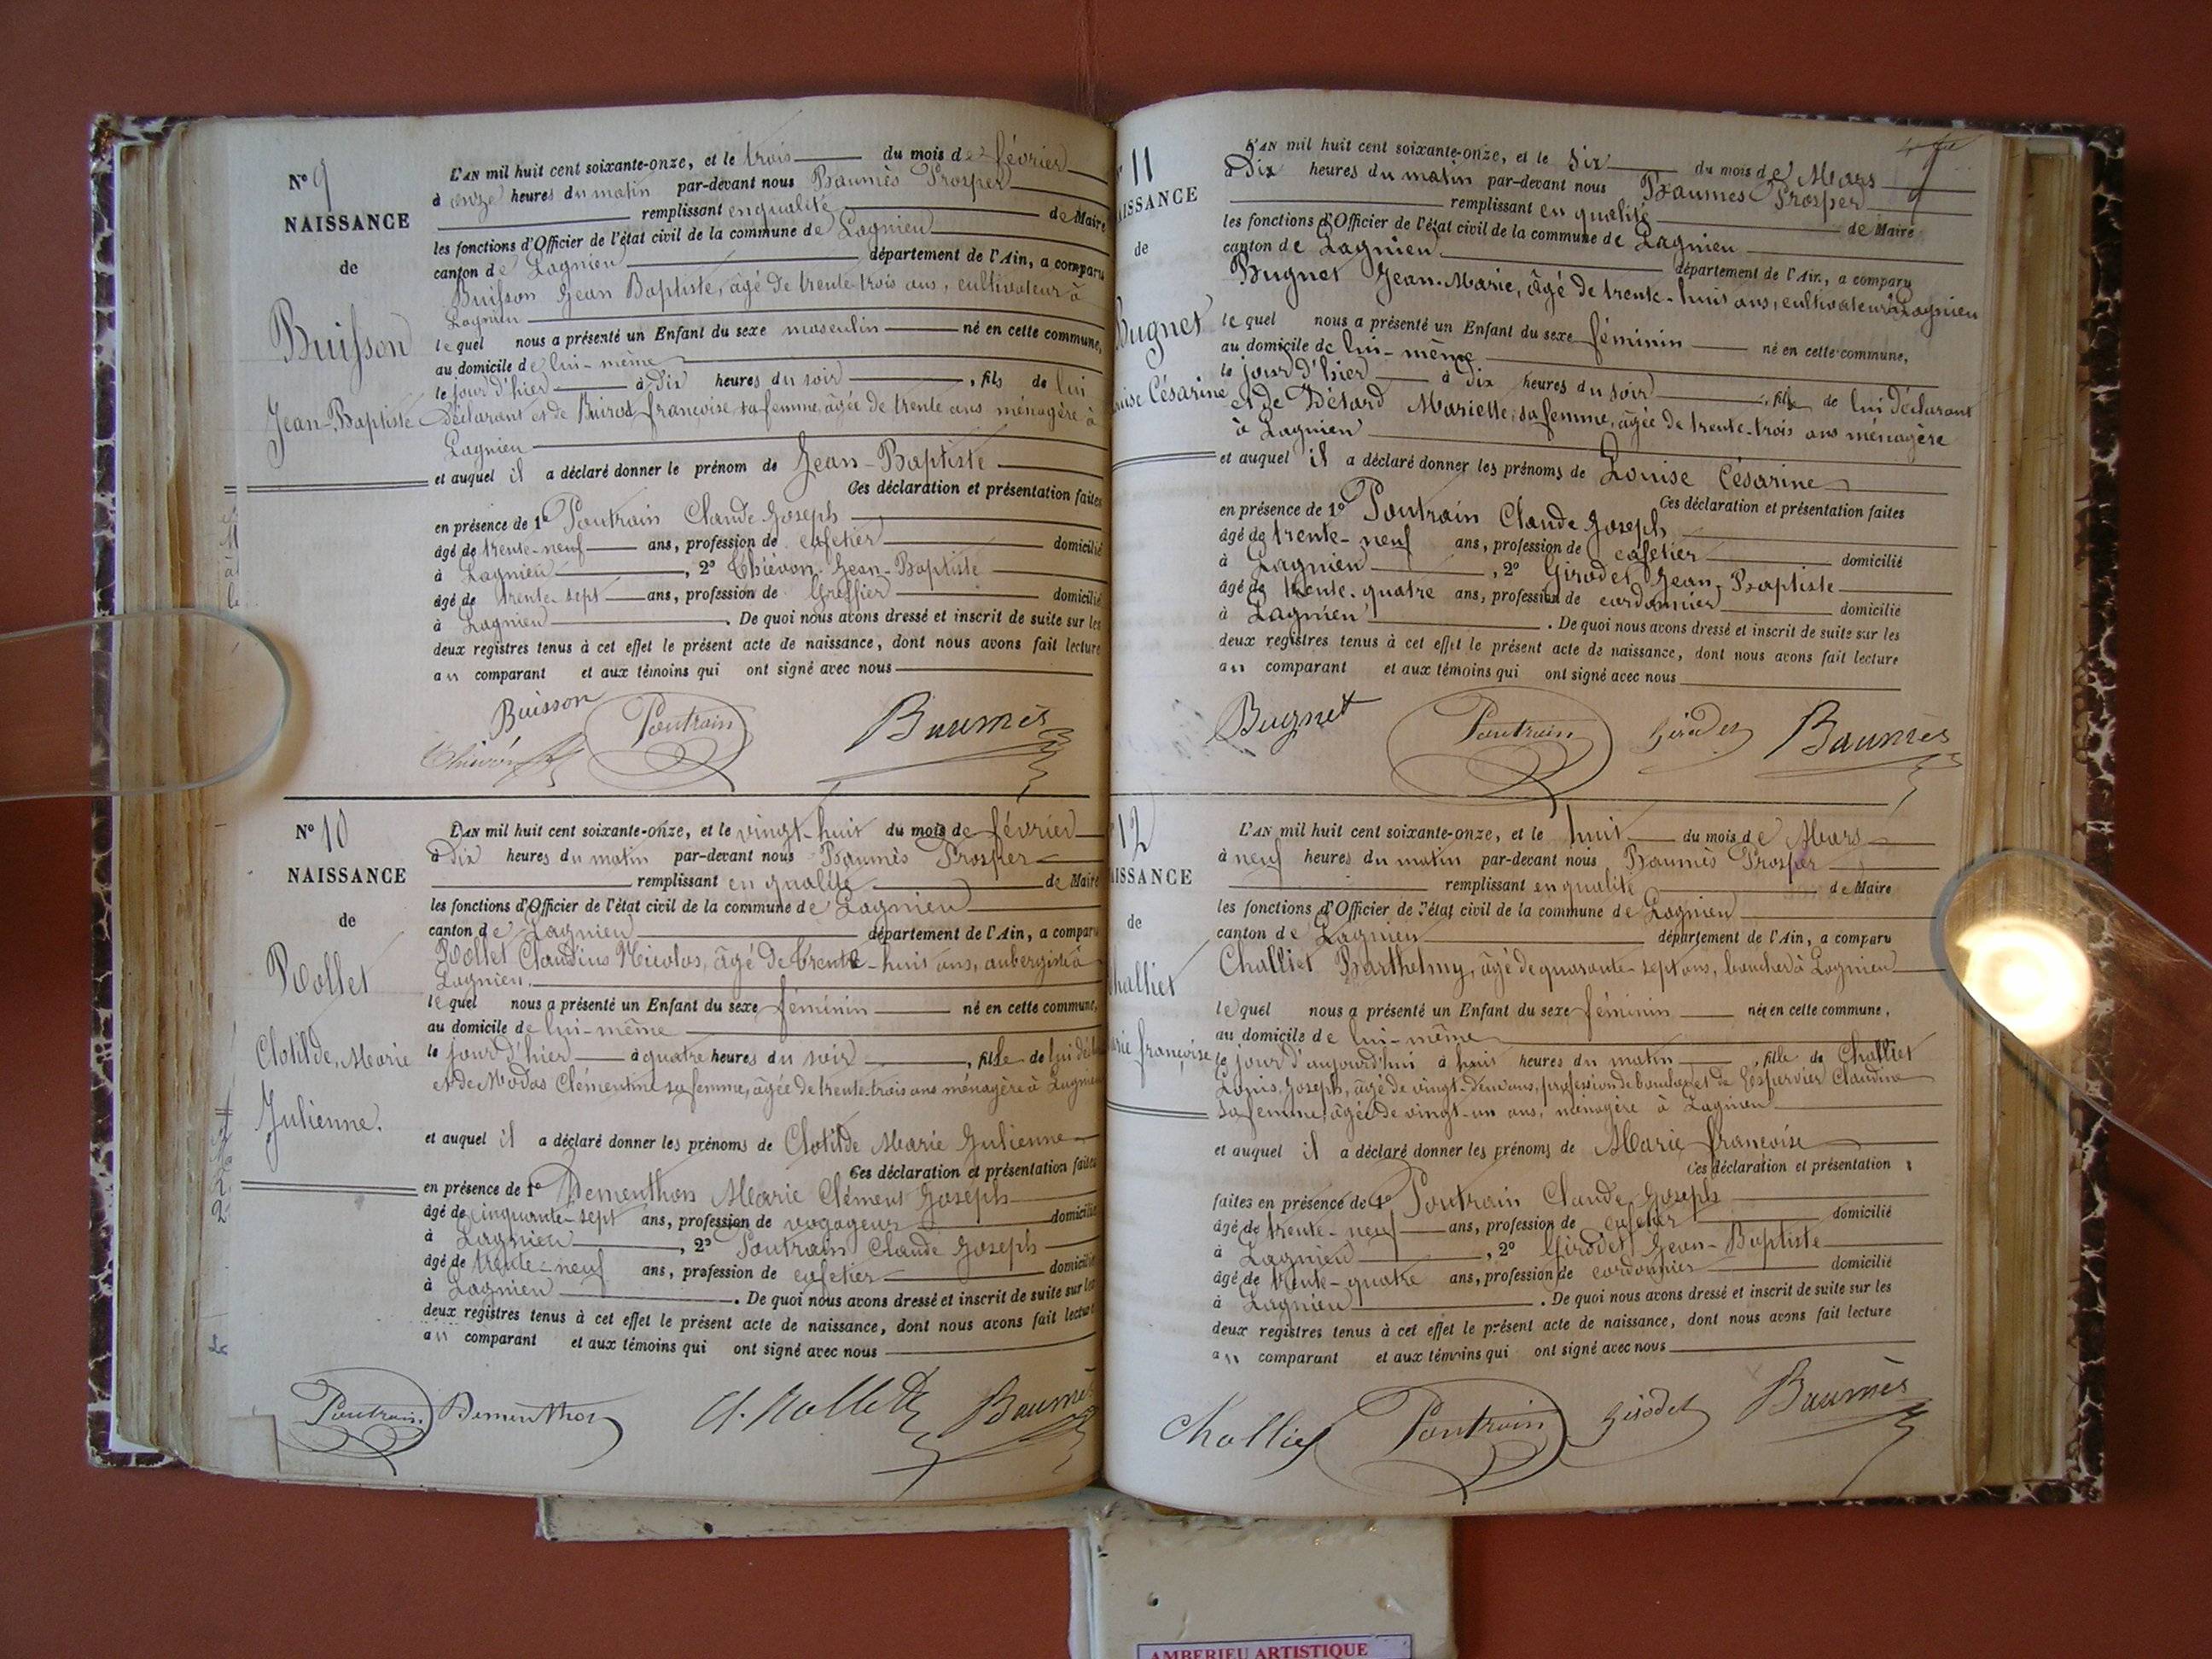 N° 9
NAISSANCE
de
Buisson
Jean-Baptiste
L'AN mil huit cent soixante-onze, et le trois du mois de février
à onze heures du matin par-devant nous Baumès Prosper
remplissant en qualité de Maire
les fonctions d'Officier de l'état civil de la commune de Lagnieu
canton de Lagnieu département de l'Ain, a comparu
Buisson Jean Baptiste, âgé de trente-trois ans, cultivateur à
Lagnieu
lequel nous a présenté un Enfant du sexe masculin né en cette commune,
au domicile de lui-même
le jour d'hier à dix heures du soir, fils de lui
déclarant et de françoise sa femme, âgée de trente ans ménagère à
Lagnieu
et auquel il a déclaré donner le prénom de Jean-Baptiste
Ces déclaration et présentation faites
en présence de 1° Poutrain Claude Joseph
âgé de trente-neuf ans, profession de cafetier domicilié
à Lagnieu, 2° Thiévon Jean-Baptiste
âgé de trente-sept ans, profession de Greffier domicilié
à Lagnieu. De quoi nous avons dressé et inscrit de suite sur les
deux registres tenus à cet effet le présent acte de naissance, dont nous avons fait lecture
au comparant et aux témoins qui ont signé avec nous
Buisson Poutrain Baumès
Thiévon
N° 10
NAISSANCE
de
Rollet
Clotilde, Marie
Julienne.
L'AN mil huit cent soixante-onze, et le vingt-huit du mois de février
à dix heures du matin par-devant nous Baumès Prosper
remplissant en qualité de Maire
les fonctions d'Officier de l'état civil de la commune de Lagnieu
canton de Lagnieu département de l'Ain, a comparu
Rollet Claudius Nicolas, âgé de trente-huit ans, aubergiste à
Lagnieu.
lequel nous a présenté un Enfant du sexe féminin né en cette commune,
au domicile de lui-même
le jour d'hier à quatre heures du soir, fille de lui
et de Modas Clémentine sa femme, âgée de trente-trois ans ménagère à Lagnieu
et auquel il a déclaré donner les prénoms de Clotilde Marie Julienne
Ces déclaration et présentation faites
en présence de 1° Dementhon Marie Clément Joseph
âgé de cinquante-sept ans, profession de voyageur domicilié
à Lagnieu, 2° Poutrain Claude Joseph
âgé de trente-neuf ans, profession de cafetier domicilié
à Lagnieu. De quoi nous avons dressé et inscrit de suite sur les
deux registres tenus à cet effet le présent acte de naissance, dont nous avons fait lecture
au comparant et aux témoins qui ont signé avec nous
Poutrain Dementhon Cl. Rollet Baumès
11
ISSANCE
de
Bugnet
uise Césarine
L'AN mil huit cent soixante-onze, et le six du mois de Mars
à Dix heures du matin par-devant nous Baumès Prosper
remplissant en qualité de Maire
les fonctions d'Officier de l'état civil de la commune de Lagnieu
canton de Lagnieu département de l'Ain, a comparu
Bugnet Jean-Marie, âgé de trente-huit ans, cultivateur à Lagnieu
lequel nous a présenté un Enfant du sexe féminin né en cette commune,
au domicile de lui-même
le jour d'hier à dix heures du soir, fille de lui déclarant
et de Désard Mariette, sa femme, âgée de trente-trois ans ménagère
à Lagnieu
et auquel il a déclaré donner les prénoms de Louise Césarine
Ces déclaration et présentation faites
en présence de 1° Poutrain Claude Joseph
âgé de trente-neuf ans, profession de cafetier domicilié
à Lagnieu, 2° Girodet Jean-Baptiste
âgé de trente-quatre ans, profession de cordonnier domicilié
à Lagnieu. De quoi nous avons dressé et inscrit de suite sur les
deux registres tenus à cet effet le présent acte de naissance, dont nous avons fait lecture
au comparant et aux témoins qui ont signé avec nous
Bugnet Poutrain Girodet Baumès
12
ISSANCE
de
halliet
rie françoise
L'AN mil huit cent soixante-onze, et le huit du mois de Mars
à neuf heures du matin par-devant nous Baumès Prosper
remplissant en qualité de Maire
les fonctions d'Officier de l'état civil de la commune de Lagnieu
canton de Lagnieu département de l'Ain, a comparu
Challiet Barthelmy, âgé de quarante-sept ans, boucher à Lagnieu
lequel nous a présenté un Enfant du sexe féminin née en cette commune,
au domicile de lui-même
le jour d'aujourd'hui à huit heures du matin, fille de Challiet
Louis Joseph, âgé de vingt-deux ans, profession de boucher et de Claudine
sa femme, âgée de vingt-un ans, ménagère à Lagnieu
et auquel il a déclaré donner les prénoms de Marie françoise
Ces déclaration et présentation
faites en présence de 1° Poutrain Claude Joseph
âgé de trente-neuf ans, profession de cafetier domicilié
à Lagnieu, 2° Girodet Jean-Baptiste
âgé de trente-quatre ans, profession de cordonnier domicilié
à Lagnieu. De quoi nous avons dressé et inscrit de suite sur les
deux registres tenus à cet effet le présent acte de naissance, dont nous avons fait lecture
au comparant et aux témoins qui ont signé avec nous
Challiet Poutrain Girodet Baumès
AMBERIEU ARTISTIQUE